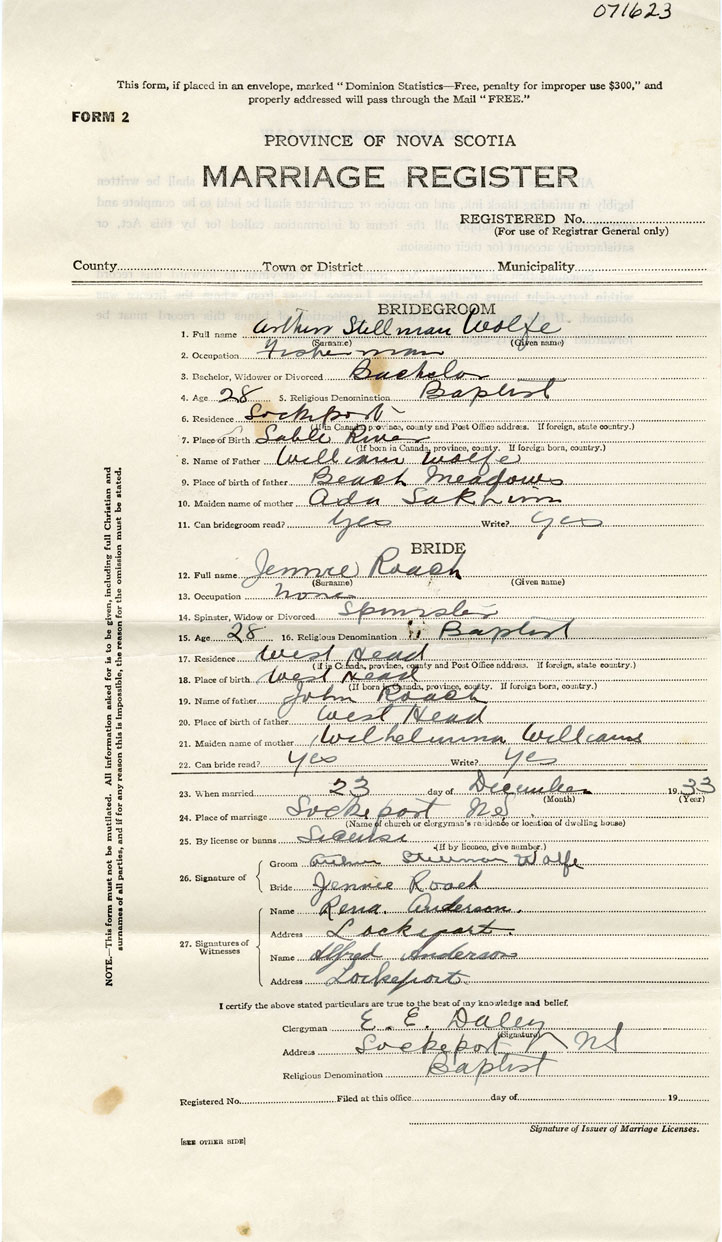 071623
This form, if placed in an envelope, marked "Dominion Statistics—Free, penalty for improper use $300," and
properly addressed will pass through the Mail "FREE."
FORM 2
PROVINCE OF NOVA SCOTIA
MARRIAGE REGISTER
REGISTERED No.
(For use of Registrar General only)
County Town or District Municipality
BRIDEGROOM
1. Full name Arthur Stillman Wolfe
(Surname) (Given name)
2. Occupation Fisherman
3. Bachelor, Widower or Divorced Bachelor
4. Age 28 5. Religious Denomination Baptist
6. Residence Lockeport
(If in Canada, province, county and Post Office address. If foreign, state country.)
7. Place of Birth Sable River
(If born in Canada, province, county. If foreign born, country.)
8. Name of Father William Wolfe
9. Place of birth of father Beach Meadows
10. Maiden name of mother Ada
11. Can bridegroom read? Yes Write? Yes
BRIDE
12. Full name Jennie Roach
(Surname) (Given name)
13. Occupation None
14. Spinster, Widow or Divorced Spinster
15. Age 28 16. Religious Denomination Baptist
17. Residence West Head
(If in Canada, province, county and Post Office address. If foreign, state country.)
18. Place of birth West Head
(If born in Canada, province, county. If foreign born, country.)
19. Name of father John Roach
20. Place of birth of father West Head
21. Maiden name of mother Wilhelmina Williams
22. Can bride read? Yes Write? Yes
23. When married 23 day of December 1933
(Month) (Year)
24. Place of marriage Lockeport NS
(Name of church or clergyman's residence or location of dwelling house)
25. By license or banns License
(If by licence, give number.)
26. Signature of
Groom Arthur Stillman Wolfe
Bride Jennie Roach
27. Signatures of Witnesses
Name Rena Anderson.
Address Lockeport.
Name Alfred Anderson
Address Lockeport.
I certify the above stated particulars are true to the best of my knowledge and belief.
Clergyman E. E. Daley
(Signature)
Address Lockeport NS
Religious Denomination Baptist
Registered No. Filed at this office day of 19
Signature of Issuer of Marriage Licenses.
[SEE OTHER SIDE]
NOTE.—This form must not be mutilated. All information asked for is to be given, including full Christian and
surnames of all parties, and if for any reason this is impossible, the reason for the omission must be stated.